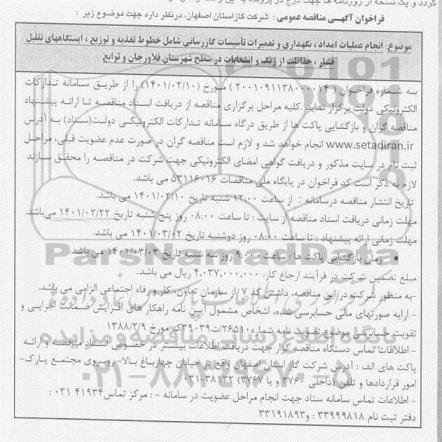 فراخوان آگهی مناقصه عمومی : شرکت گاز استان اصفهان درنظر دارد جهت موضوع زیر :
موضوع: انجام عملیات امداد ، نگهداری و تعمیرات تأسیسات گازرسانی شامل خطوط تغذیه و توزیع ، ایستگاههای تقلیل
فشار ، حفاظت از زنگ و انشعابات در سطح شهرستان فلاورجان و توابع
به شماره فراخوان مورخ (۱۴۰۱/۰۲/۱۰) را از طریق سامانه تدارکات
الکترونیکی دولت برگزار نماید. کلیه مراحل برگزاری مناقصه از دریافت اسناد مناقصه تا ارائه پیشنهاد
مناقصه گران و بازگشایی پاکت ها از طریق درگاه سامانه تدارکات الکترونیکی دولت(ستاد) به آدرس
www.setadiran.ir انجام خواهد شد و لازم است مناقصه گران در صورت عدم عضویت قبلی، مراحل
ثبت نام در سایت مذکور و دریافت گواهی امضای الکترونیکی جهت شرکت در مناقصه را محقق سازند
لازم به ذکر است کد فراخوان در پایگاه ملی مناقصات می باشد.
تاریخ انتشار مناقصه درسامانه : از ساعت ۱۲:۰۰ شنبه تاریخ ۱۴۰۱/۰۲/۱۰ می باشد.
مهلت زمانی دریافت اسناد مناقصه از سایت : تا ساعت ۰۸:۰۰ روز پنج شنبه تاریخ ۱۴۰۱/۰۲/۲۲ می باشد.
مهلت زمانی ارائه پیشنهاد : تا ساعت ۰۸:۰۰ روز دوشنبه تاریخ ۱۴۰۱/۰۳/۰۲ می باشد.
زمان بازگشایی پاکت ها : ساعت روز سه شنبه تاریخ ۱۴۰۱/۰۳/۰۳ می باشد
مبلغ تضمین شرکت در فرآیند ارجاع کار: ۴,۰۳۷,۰۰۰,۰۰۰ ریال می باشد.
-به منظور شرکت در این مناقصه، داشتن کد ۷ از سازمان تعاون، کار و رفاه اجتماعی الزامی می باشد.
- ارایه صورتهای مالی حسابرسی شده، اشخاص مشمول آیین نامه راهکار های افزایش ضمانت اجرایی و
تقویت حسابرسی موضوع تصویب نامه شماره مورخ ۱۳۸۸/۲/۹
- اطلاعات تماس دستگاه مناقصه گزار جهت دریافت اطلاعات بیشتر در خصوص اسناد مناقصه و ارائه
پاکت های الف : آدرس شرکت گاز استان اصفهان واقع در خیابان چهارباغ بالا- روبروی مجتمع پارک-
امور قراردادها و تلفن (داخلی ۳۷۶۰ و یا ۳۷۶۷) ۳۸۱۳۲-۰۳۱
- اطلاعات تماس سامانه ستاد جهت انجام مراحل عضویت در سامانه - : مرکز تماس ۴۱۹۳۴ ۰۲۱ :
دفتر ثبت نام ۳۳۹۹۹۸۱۸ : و۳۳۱۹۱۸۹۳
ParsNamadData
۰۲۱-۸۸۳۴۹۶۷۰-۵